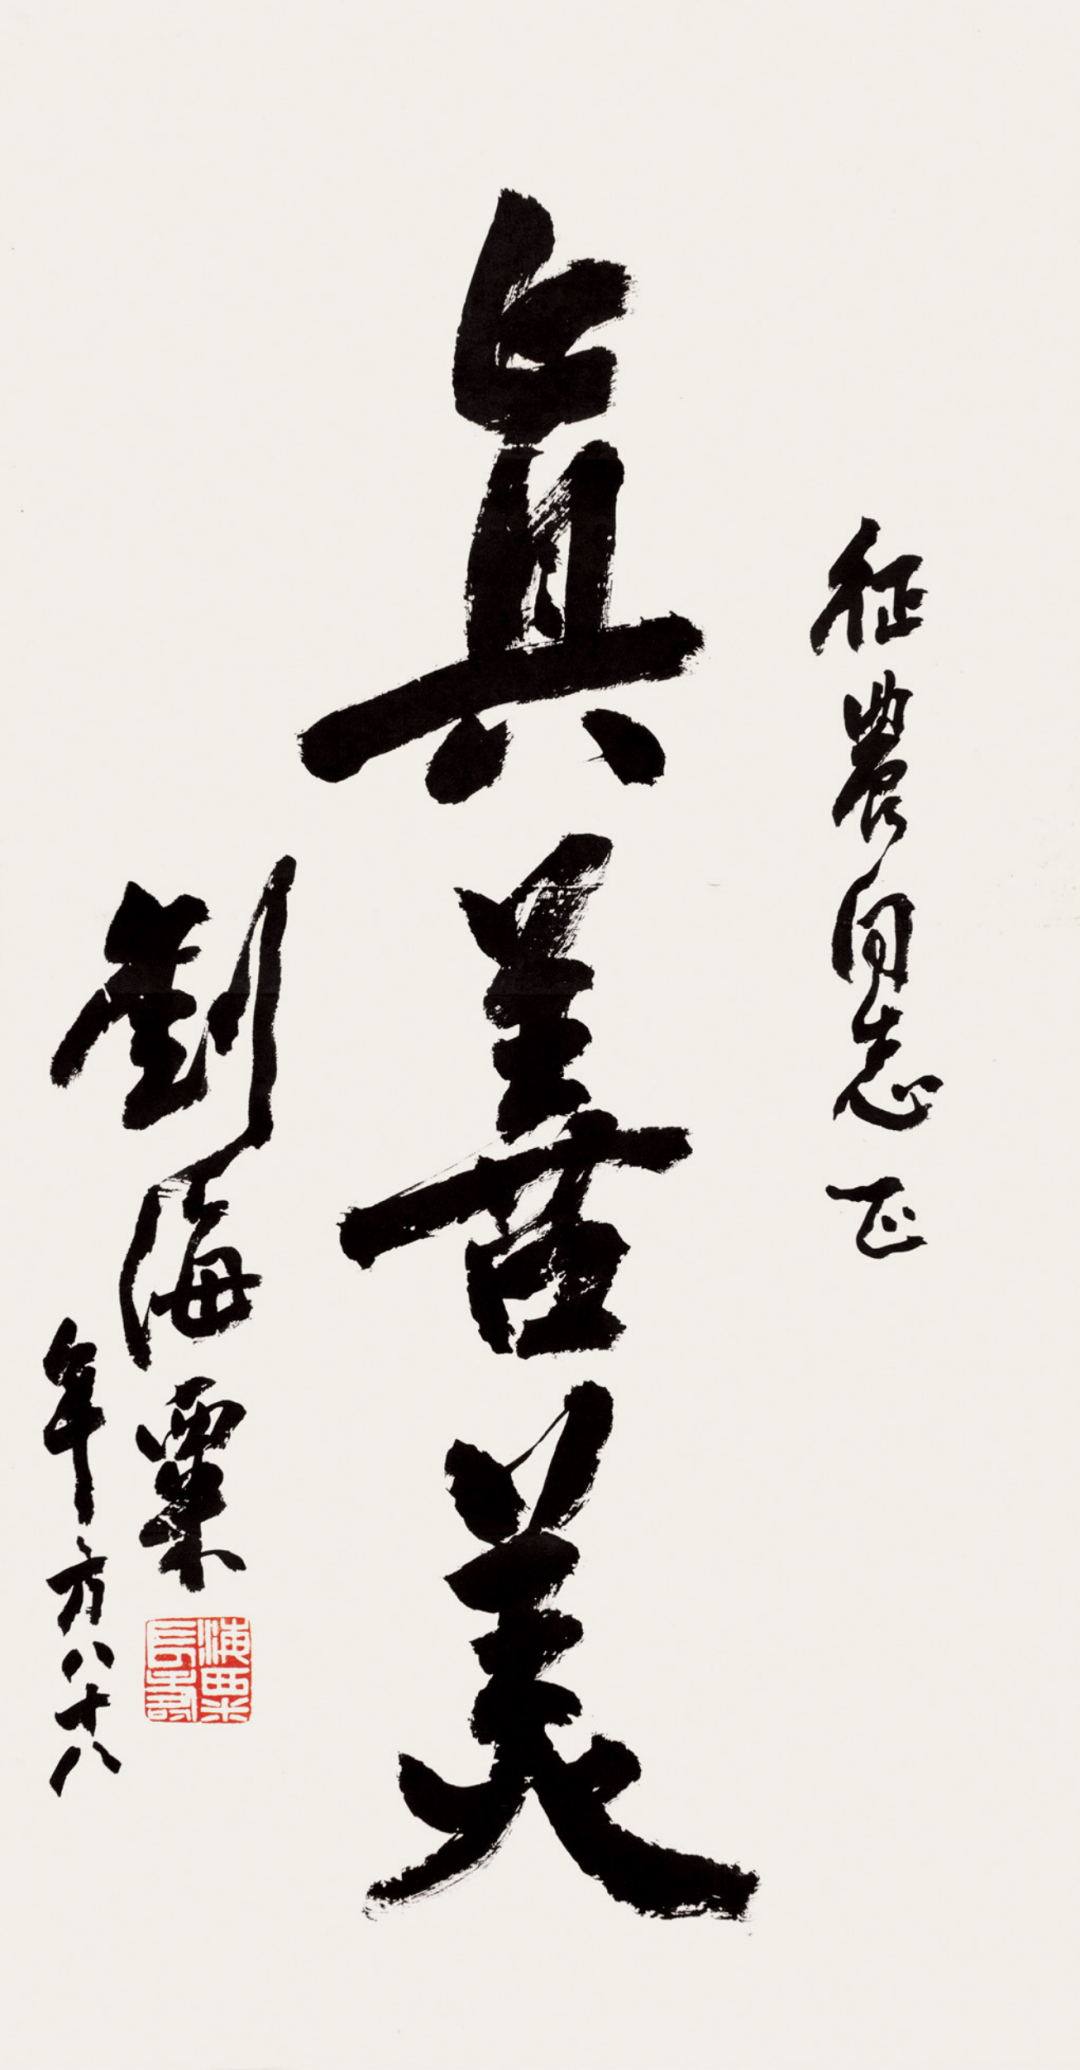 征農同志正
真善美
劉海粟
年方八十八
海粟長壽